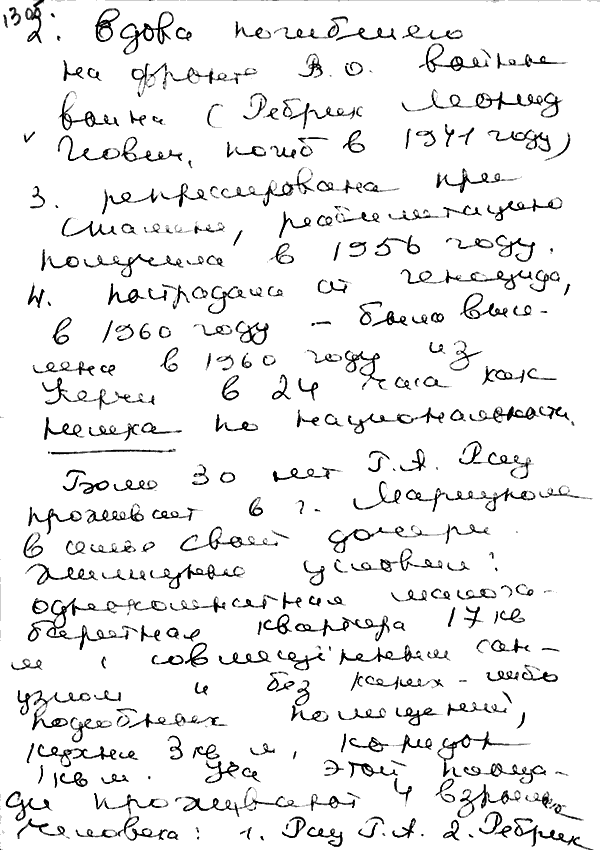 13 об.
2. Вдова погибшего
на фронте В.О. войны
воина (Ребрик Леонид
Иович, погиб в 1941 году)
3. репрессирована при
Сталине, реабилитацию
получила в 1956 году.
4. пострадала от геноцида,
в 1960 году – была высе-
лена в 1960 году из
Керчи в 24 часа как
немка по национальности.
Более 30 лет Г.А. Рау
проживает в г. Мариуполе
в семье своей дочери.
Жилищные условия:
однокомнатная малога-
баритная квартира 17 кв
м, совмещённым сан-
узлом и без каких-либо
подсобных помещений,
кухня 3 кв м, коридор
1 кв м. На этой площа-
ди проживают 4 взрослых
человека: 1. Рау Г.А. 2. Ребрик